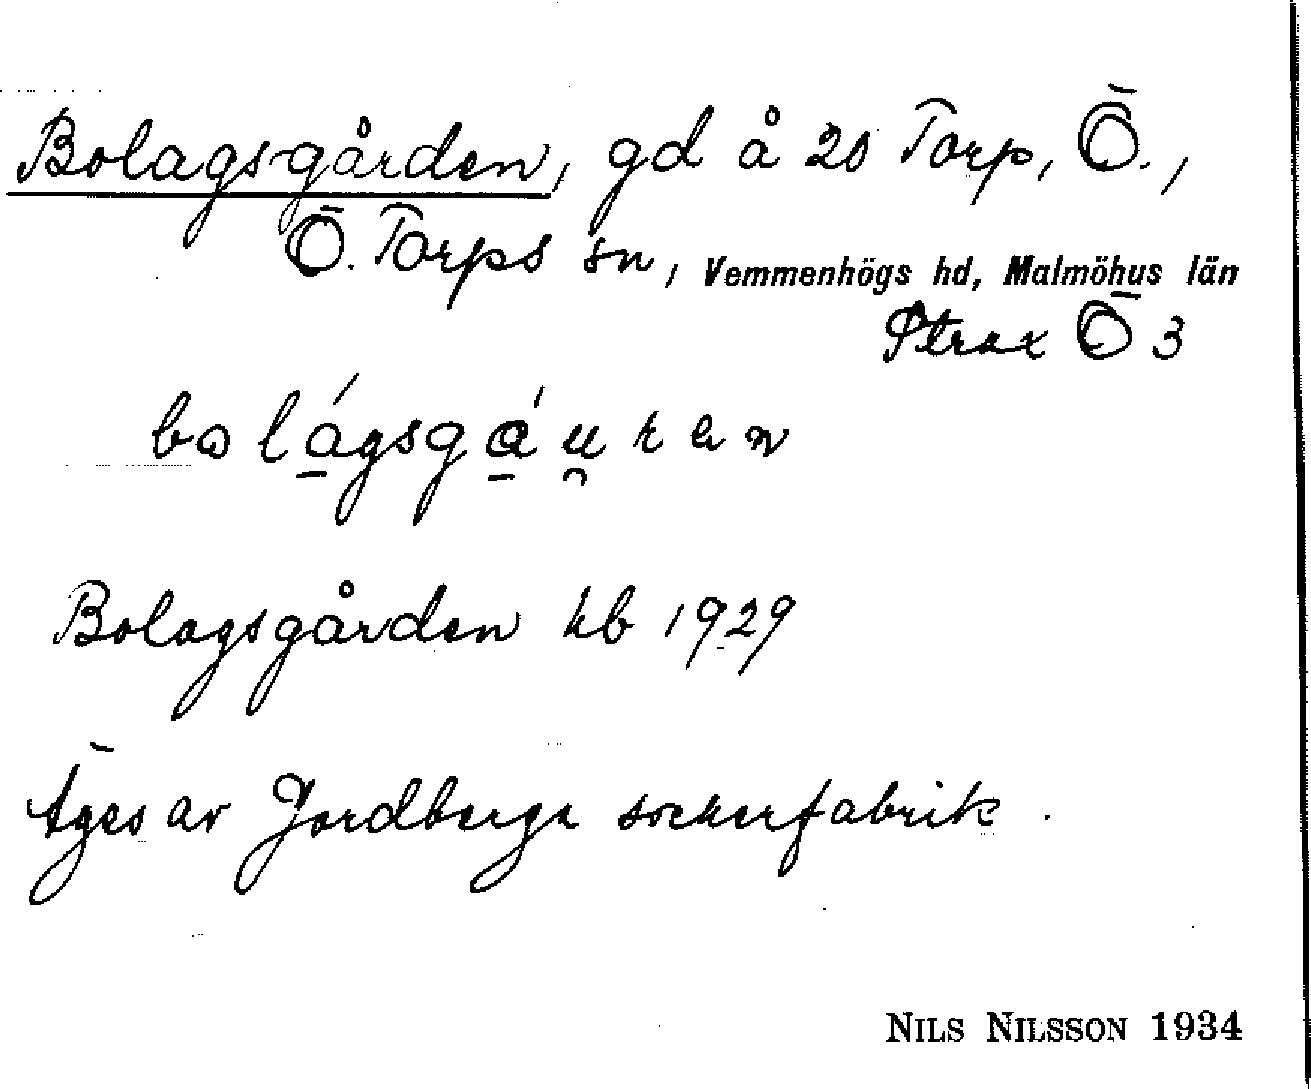 Bolagsgården, gd å 20 Torp, Ö.,
Ö. Torps sn, Vemmenhögs hd, Malmöhus län
Strax Ö 3
bolágsgáu̯ren
Bolagsgården kb 1929
Äges av Jordberga sockerfabrik.
NILS NILSSON 1934